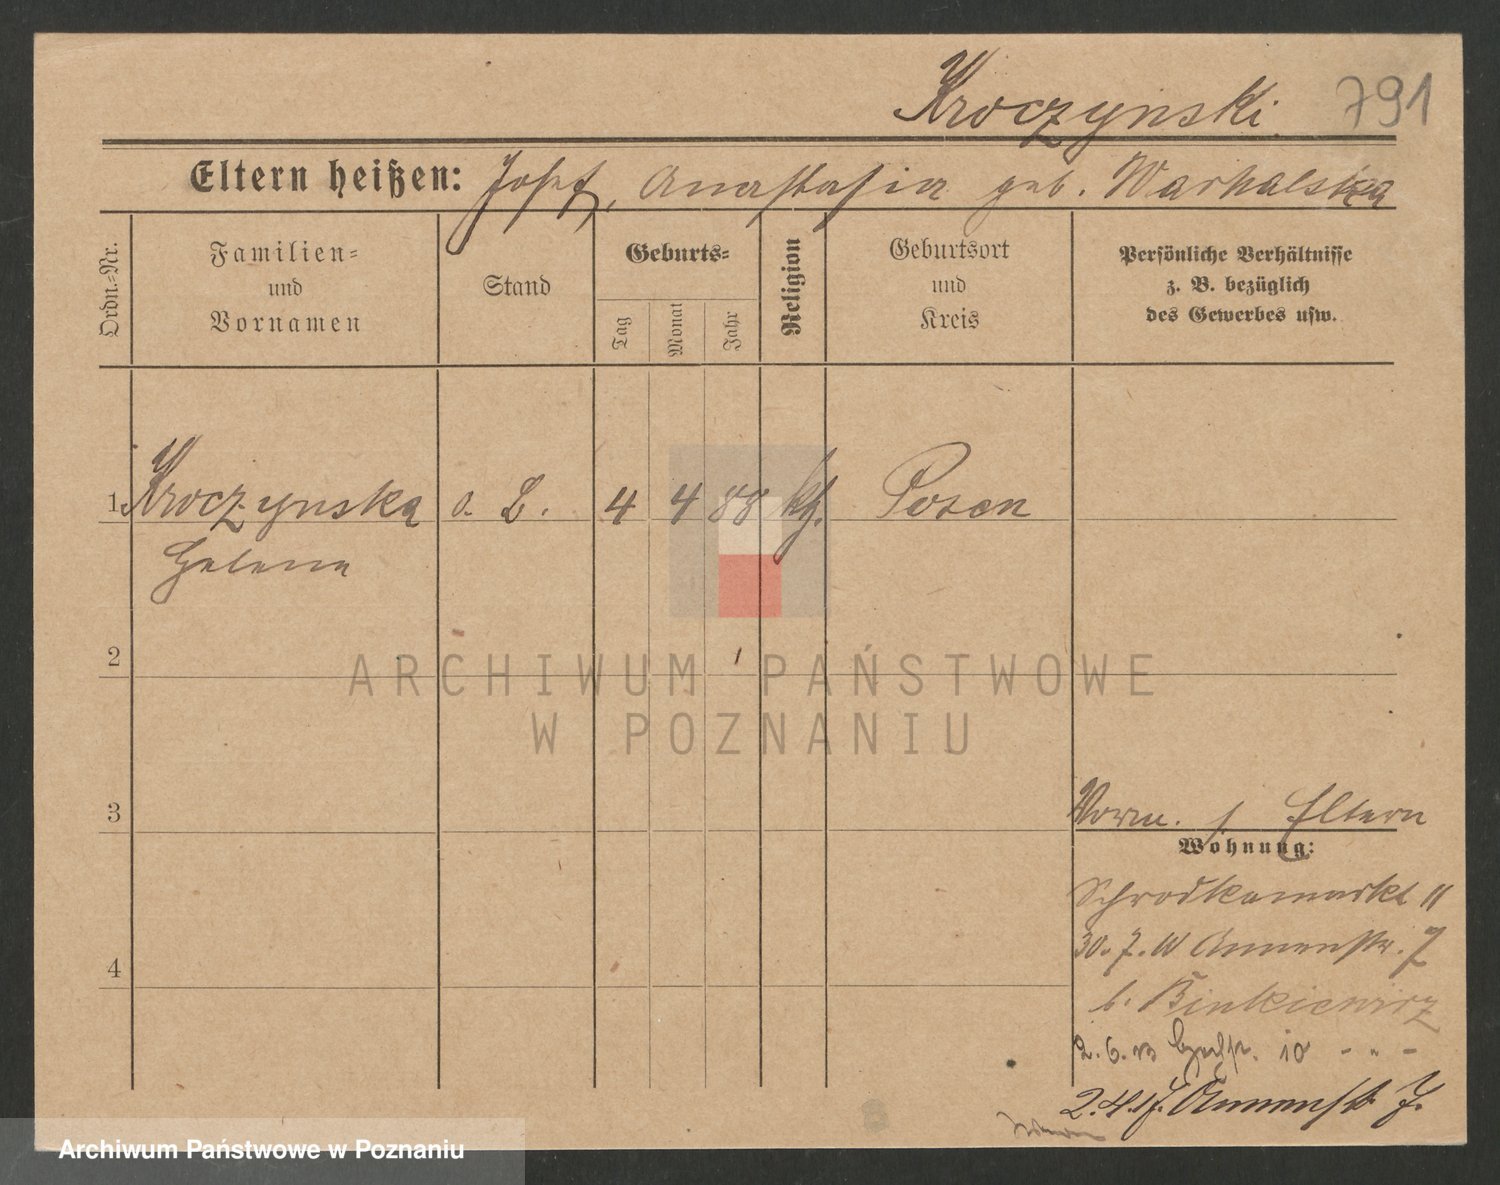 Kroczynski 791
Eltern heißen: Josef, Anastasia geb. Warhalska
Ordn.-Nr.
Familien-
und
Vornamen
Stand
Geburts-
Tag
Monat
Jahr
Religion
Geburtsort
und
Kreis
Persönliche Verhältnisse
z. B. bezüglich
des Gewerbes usw.
1 Kroczynska o. L. 4 4 88 kth. Posen
Helena
2
ARCHIWUM PAŃSTWOWE
W POZNANIU
3
Vorm. s. Eltern
Wohnung:
Schrodkamarkt 11
30. 7. 10 Annenstr. 7
4
b. Binkiewicz
2. 6. 13 10 - " -
2. 4. 17. Annenstr. 7.
Archiwum Państwowe w Poznaniu